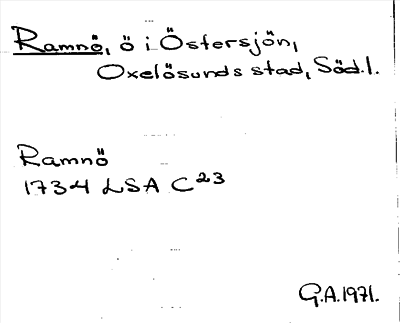 Ramnö, ö i Östersjön,
Oxelösunds stad, Söd.l.
Ramnö
1734 LSA C23
G.A.1971.